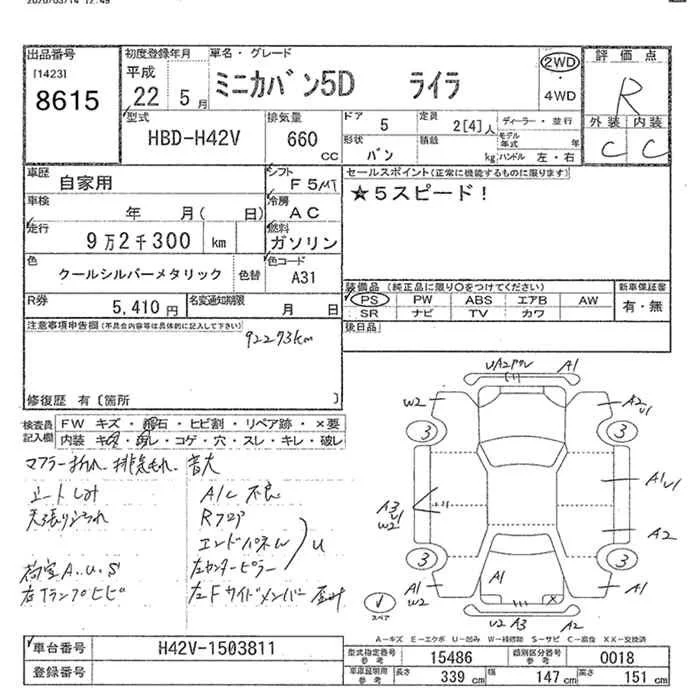 2020/03/14 12:49
出品番号 初度登録年月 車名・グレード 評価点
[1423] 8615 平成 22 5月 ミニカバン5D ライラ 2WD・4WD R
型式 排気量 ドア 定員 ディーラー・並行 外装 内装
HBD-H42V 660 cc 5 2[4]人 モデル年式 年 C C
形状 バン 積載 kg ハンドル 左・右
車歴 自家用 シフト F5MT セールスポイント(正常に機能するものに限ります)
★5スピード!
車検 年 月( 日) 冷房 AC
走行 9万2千300 km 燃料 ガソリン
色 クールシルバーメタリック 色替 色コード A31
装備品(純正品に限り○をつけてください) 新車保証書
R券 5,410円 名変通知期限 月 日 PS PW ABS エアB AW 有・無
SR ナビ TV カワ
注意事項申告欄(不具合内容等は具体的に記入して下さい) 後日品
92293km
修復歴 有〔箇所 〕
検査員記入欄 FW キズ・飛石・ヒビ割・リペア跡・×要
内装 キズ・汚レ・コゲ・穴・スレ・キレ・破レ
音大
シートしみ A/C 不良
Rフロア
エンドパネルW
左センターピラー U
左Fサイドメンバー
UA2 A1
W2 A2 U1
3 3
A3 U1 W2 A1 U1
A2
3 3
A1 W2 A1 A1
スペア U2 A3 A2
A-キズ E-エクボ U-凹み W-補修跡 S-サビ C-腐蝕 XX-交換済
車台番号 H42V-1503811 型式指定番号 参考 15486 類別区分番号 参考 0018
登録番号 車庫証明用 参考 長さ 339 cm 幅 147 cm 高さ 151 cm